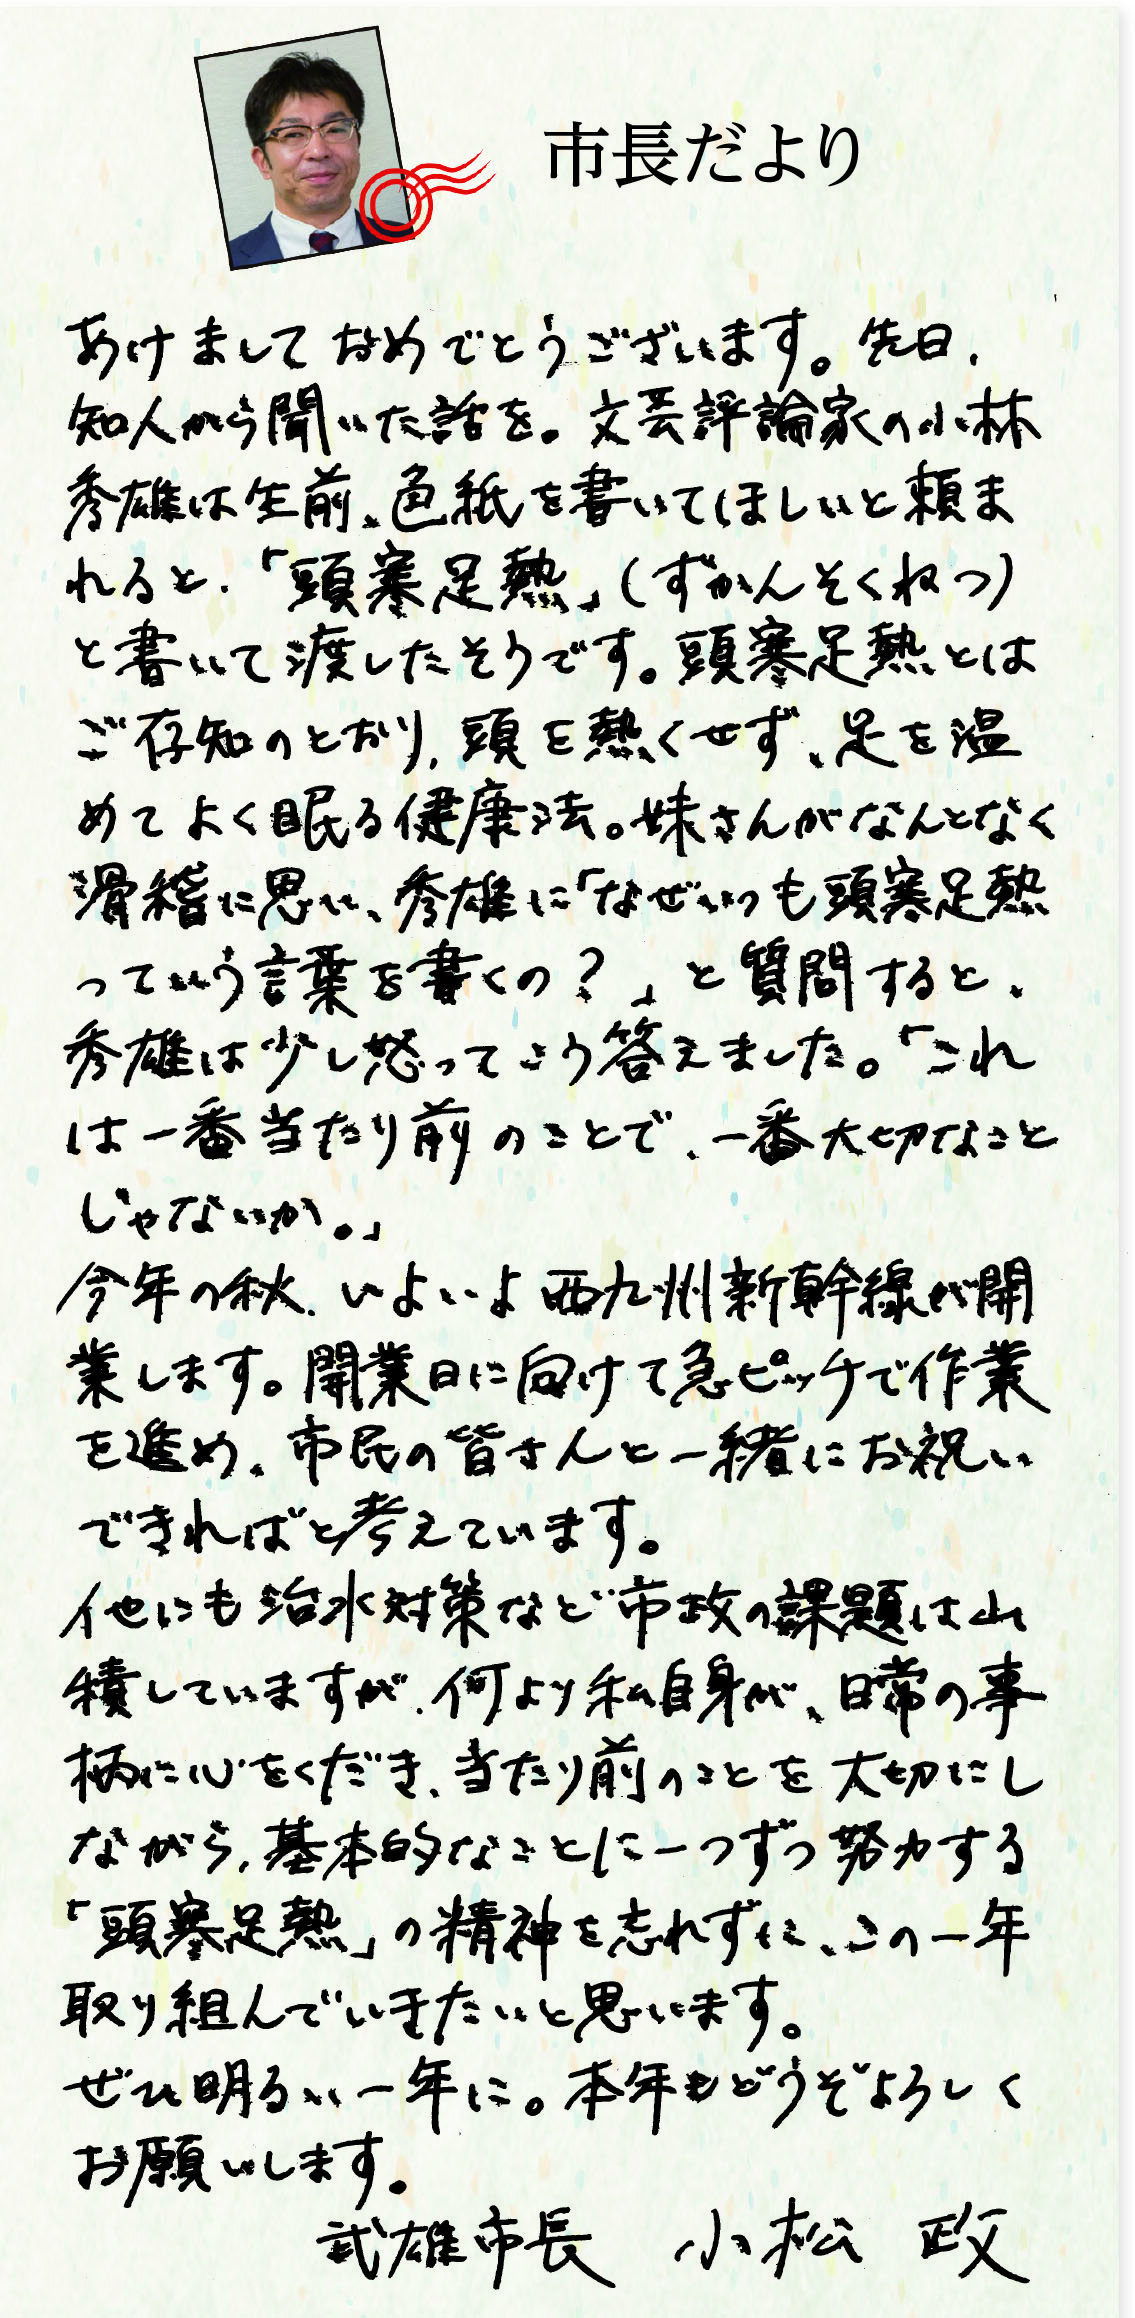 市長だより
あけましておめでとうございます。先日、
知人から聞いた話を。文芸評論家の小林
秀雄は生前、色紙を書いてほしいと頼ま
れると、「頭寒足熱」(ずかんそくねつ)
と書いて渡したそうです。頭寒足熱とは
ご存知のとおり、頭を熱くせず、足を温
めてよく眠る健康法。妹さんがなんとなく
滑稽に思い、秀雄に「なぜいつも頭寒足熱
っていう言葉を書くの?」と質問すると、
秀雄は少し怒ってこう答えました。「これ
は一番当たり前のことで、一番大切なこと
じゃないか。」
今年の秋、いよいよ西九州新幹線が開
業します。開業日に向けて急ピッチで作業
を進め、市民の皆さんと一緒にお祝い
できればと考えています。
他にも治水対策など市政の課題は山
積していますが、何より私自身が、日常の事
柄に心をくだき、当たり前のことを大切にし
ながら、基本的なことに一つずつ努力する
「頭寒足熱」の精神を忘れずに、この一年
取り組んでいきたいと思います。
ぜひ明るい一年に。本年もどうぞよろしく
お願いします。
武雄市長 小松 政